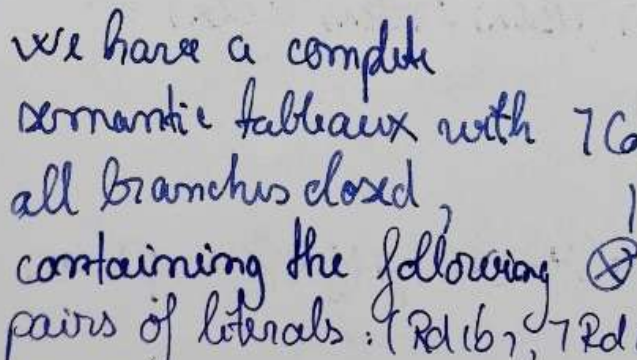 we have a complete
semantic tableaux with ㄱC
all branches closed,
containing the following ⊗
pairs of literals: (Rd,b), ㄱRd